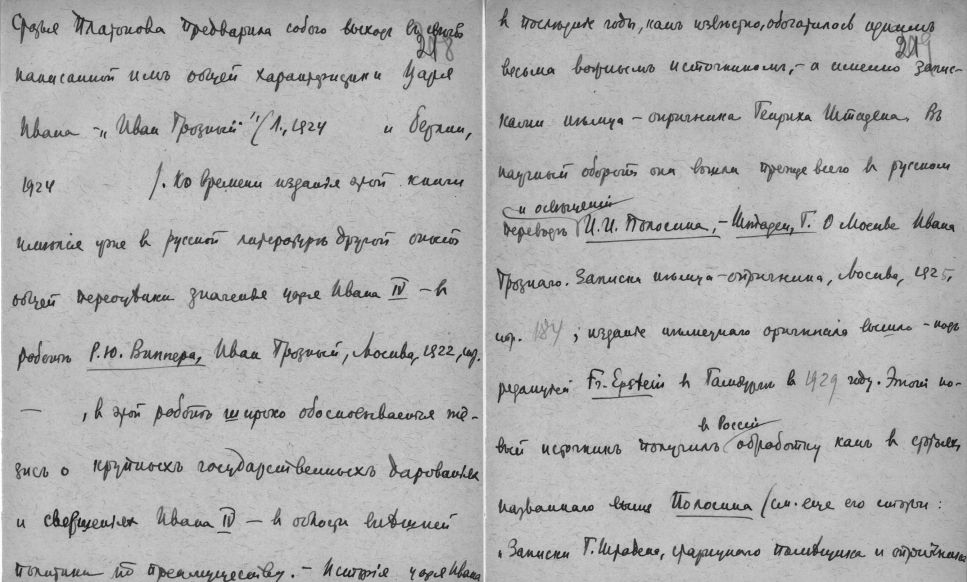 Статья Платонова предварила собою выход въ светъ
218
написанной имъ общей характеристики Царя
Ивана – „Иван Грозный" (Л., 1924 и Берлин,
1924 ). Ко времени изданія этой книги
имѣлся уже в русской литературѣ другой опытъ
общей переоценки значенія царя Ивана IV – в
работѣ Р.Ю. Виппера, Иван Грозный, Москва, 1922, стр.
— , в этой работѣ широко обосновывается те-
зисъ о крупныхъ государственныхъ дарованіях
и свершеніях Ивана IV – в области внѣшней
политики по преимуществу. – Исторія царя Ивана
в последніе годы, какъ извѣстно, обогатилась однимъ
219
весьма важнымъ источникомъ, – а именно Запис-
ками нѣмца – опричника Генриха Штадена. Въ
научный оборотъ они вошли прежде всего в русском
и освѣщеніи
переводѣ И.И. Полосина, – Штаден, Г. О Москве Ивана
Грознаго. Записки нѣмца – опричника, Москва, 1925,
стр. 184 ; изданіе нѣмецкаго оригинала вышло – подъ
редакціей Fr. Epstein в Гамбургѣ в 1929 году. Этот но-
в Россіи
вый источникъ получилъ обработку какъ в статьях
названнаго выше Полосина (см. еще его статьи:
„Записки Г. Штадена, помѣщика и опричника